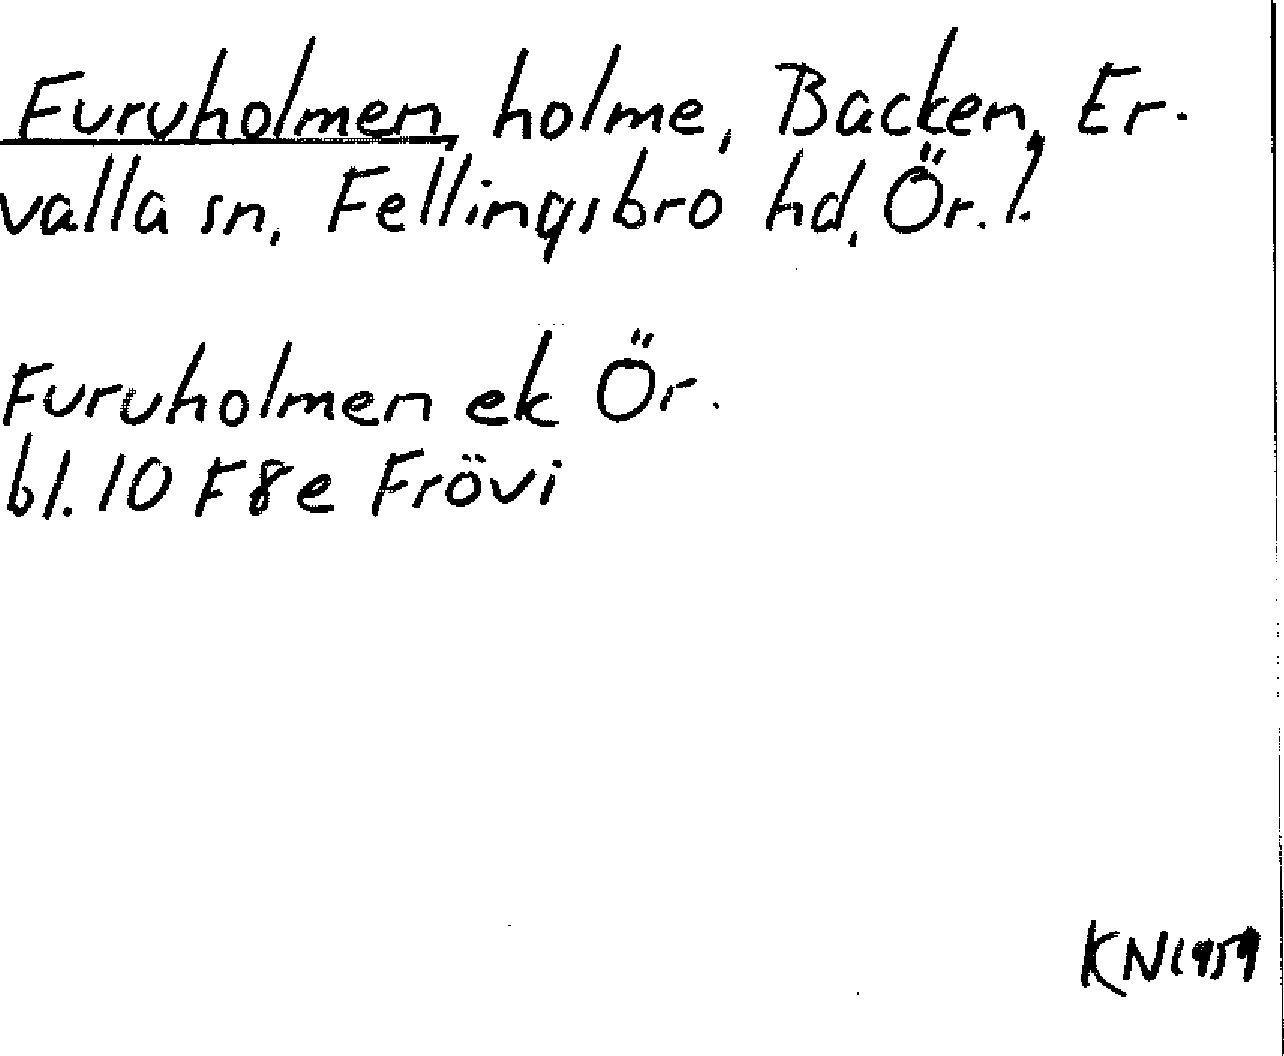 Furuholmen, holme, Backen, Er-
valla sn, Fellingsbro hd, Ör. l.
Furuholmen ek Ör.
bl. 10 F 8e Frövi
KN 1959